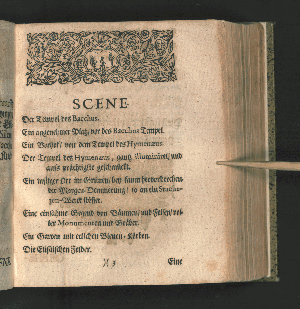 SCENE.
Der Tempel des Bacchus.
Ein angenehmer Platz vor des Bacchus Tempel.
Ein Vorhof vor dem Tempel des Hymenæus.
Der Tempel des Hymenæus, gantz illuminiret, und
aufs prächtigste geschmückt.
Ein lustiger Ort im Grünen, bey hervorbrechender
Morgen-Demmerung
Eine einsahme Gegend von Bäumen und Felsen
Monumenten und Gräber.
Ein Garten mit etlichen Bienen-Körben.
Die Elisäischen Felder.
Eine